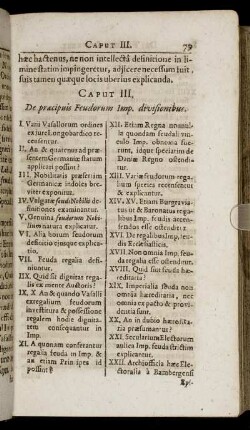 CAPUT III. 79
hæc hactenus, ne non intellectâ definitione in li-
mine statim impingeretur, adjicere necessum fuit,
suis tamen quæque locis uberius explicanda.
CAPUT III.
De præcipuis Feudorum Imp. divisionibus.
I. Varii Vasallorum ordines
ex jure Longobardico re-
censentur.
II. An & quatenus ad præ-
sentem Germaniæ statum
applicari possint?
III. Nobilitatis præsertim
Germanicæ indoles bre-
viter exponitur.
IV. Vulgatæ feudi Nobilis de-
finitiones examinantur.
V. Genuina feudorum Nobi-
lium natura explicatur.
VI. Alia horum feudorum
definitio ejusque explica-
tio.
VII. Feuda regalia defi-
niuntur.
IIX. Quid sit dignitas rega-
lis ex mente Auctoris?
IX. X An & quando Vasalli
ex regalium feudorum
investitura & possessione
regalem hodie dignita-
tem consequantur in
Imp.
XI. A quonam conferantur
regalia feuda in Imp. &
an etiam Principes id
possint?
XII. Etiam Regna nonnul-
la quondam feudali vin-
culo Imp. obnoxia fue-
runt, idque speciatim de
Daniæ Regno ostendi-
tur.
XIII. Variæ feudorum rega-
lium species recensentur
& explicantur.
XIV. XV. Etiam Burggravia-
tus & Baronatus regali-
bus Imp. feudis accen-
sendos esse ostenditur?
XVI. De regalibus Imp. feu-
dis Ecclesiasticis.
XVII. Non omnia Imp. feu-
da regalia esse ostenditur.
XVIII. Quid sint feuda hæ-
reditaria?
XIX. Imperialia feuda non
omnia hæreditaria, nec
omnia ex pacto & provi-
dentia sunt.
XX. An in dubio hæredita-
ria præsumantur?
XXI. Secularium Electorum
antiqua Imp. feuda strictim
explicantur.
XXII. Archiofficia hæc Ele-
ctoralia à Bambergensi
Ep-